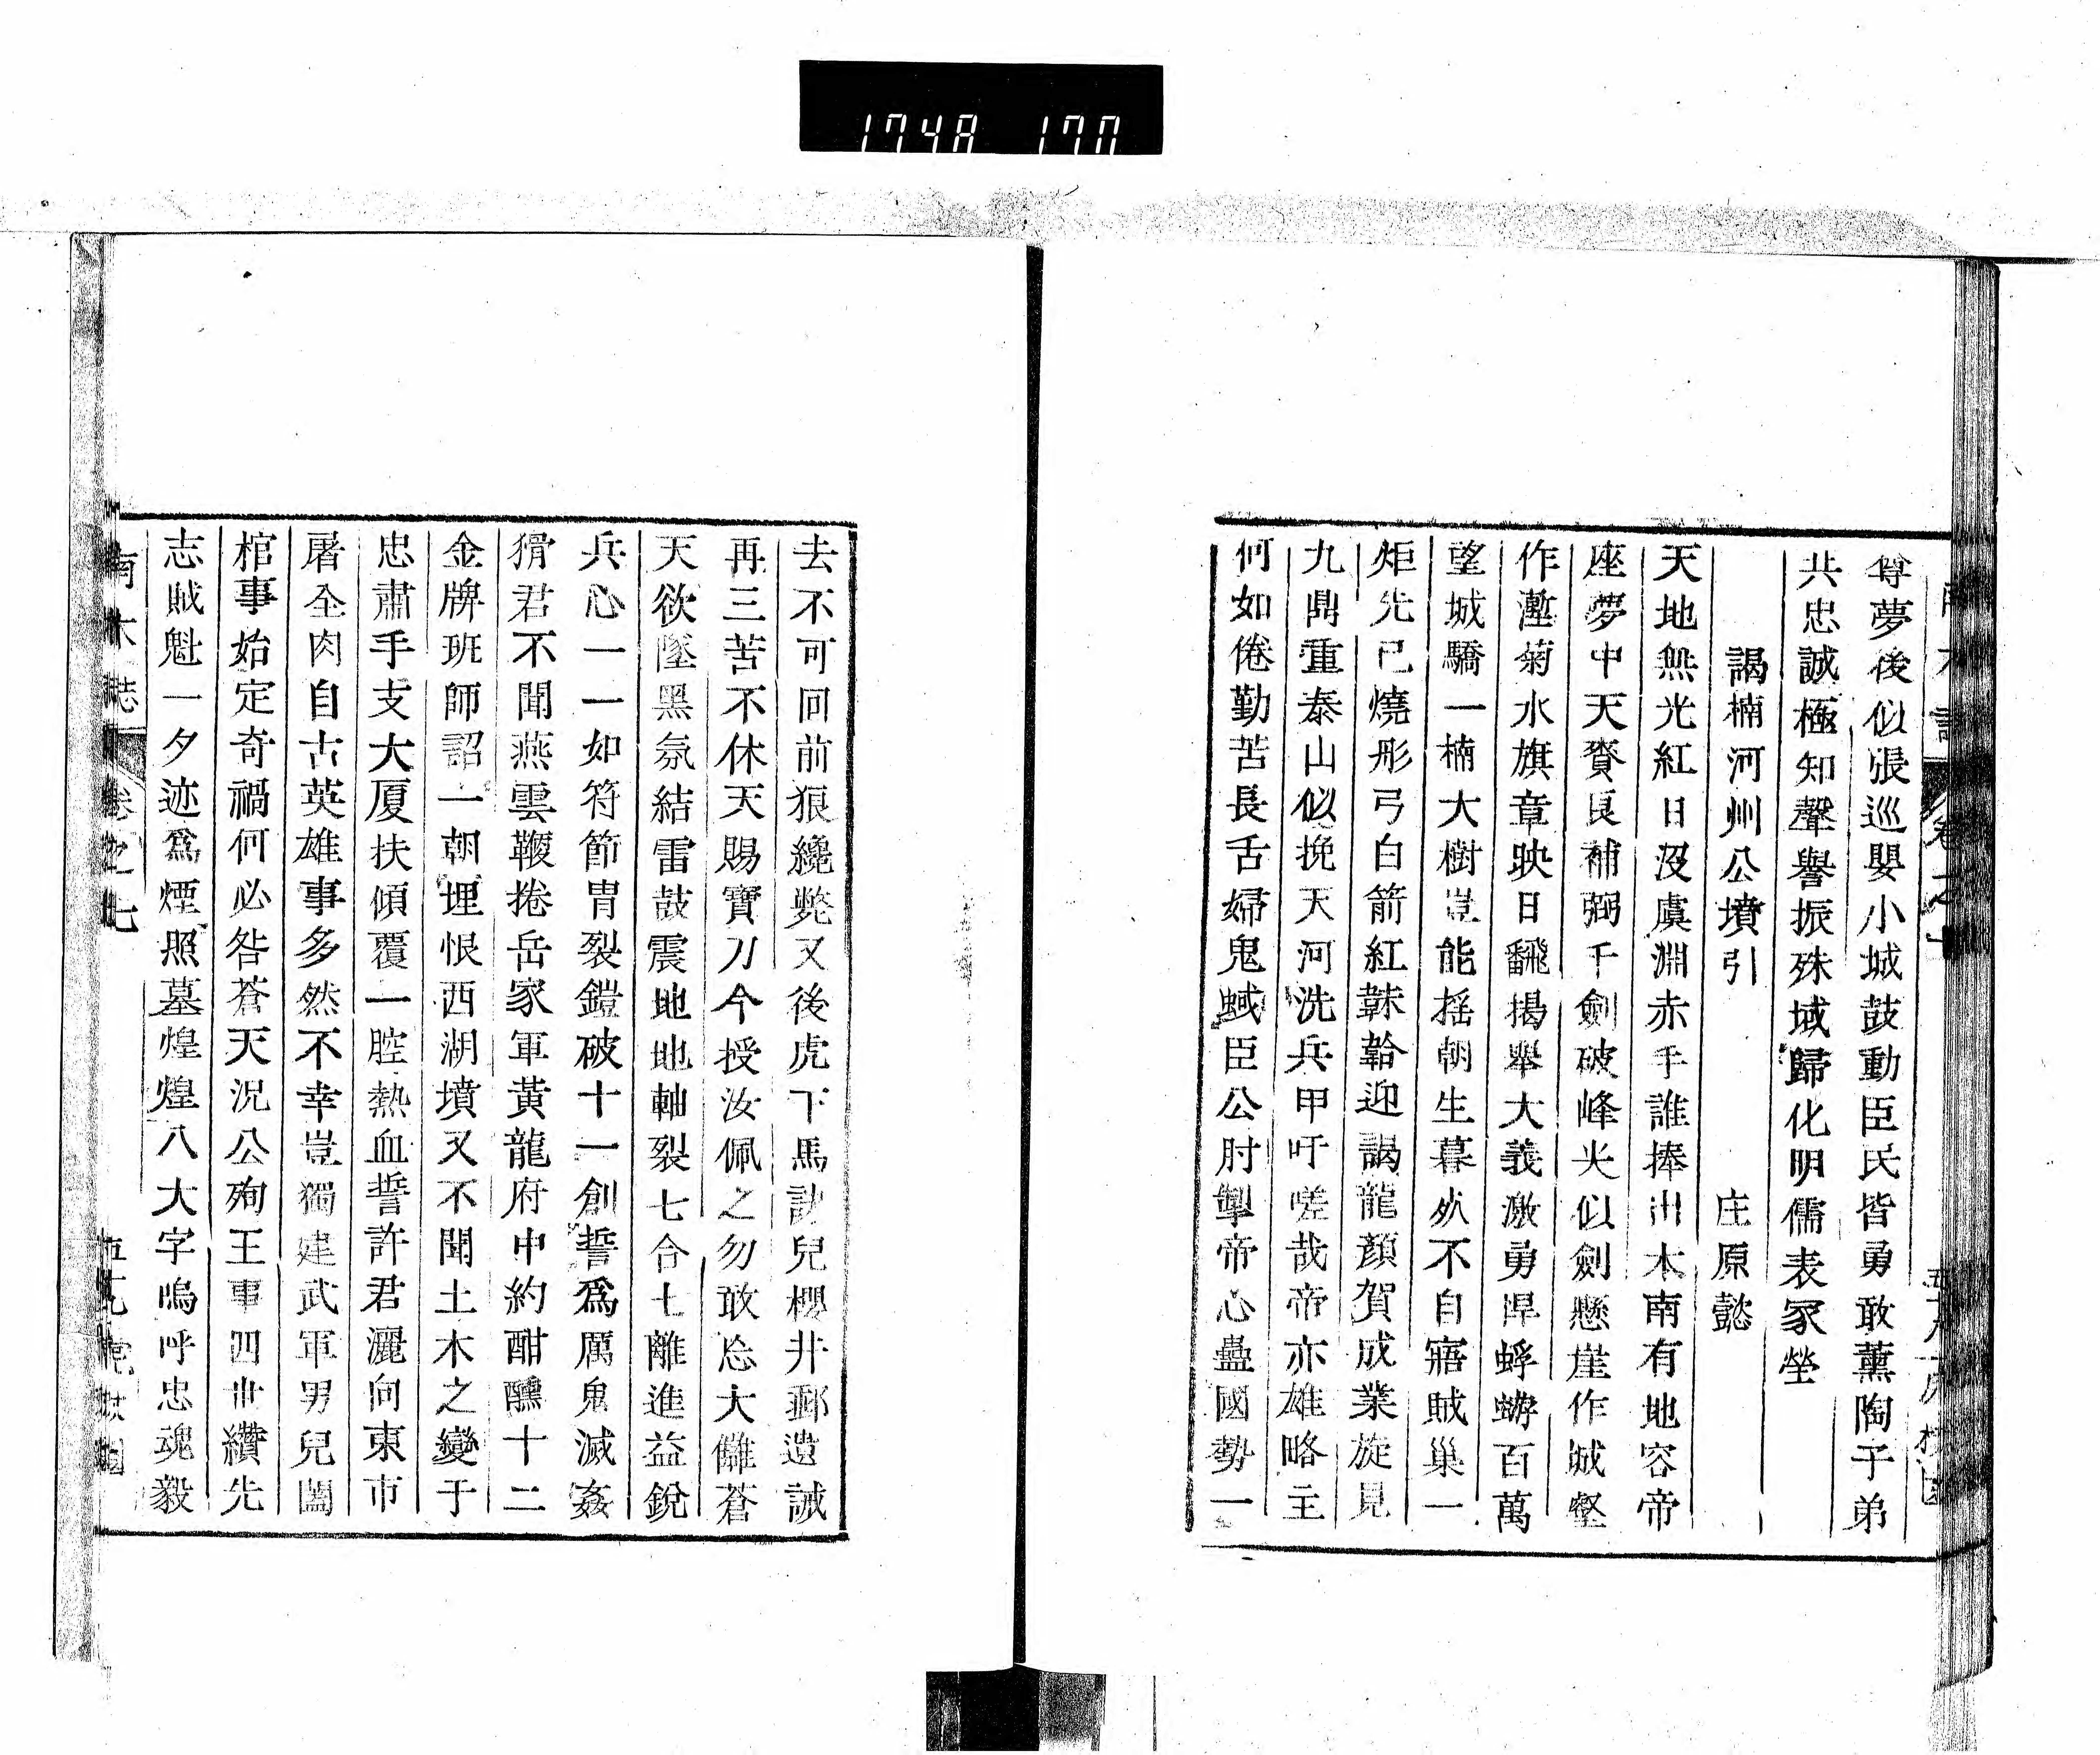 1748 170
尊夢後似張巡嬰小城鼓動臣民皆勇敢薰陶子弟
共忠誠極知聲譽振殊域歸化明儒表冢塋
謁楠河州公墳引 庄原懿
天地無光紅日沒虞淵赤手誰捧出木南有地容帝
座夢中天賚良補弼千劍破峰尖似劍懸崖作城壑
作塹菊水旗章映日飜揭舉大義激勇悍蜉蝣百萬
望城驕一楠大樹豈能搖朝生暮死不自寤賊巢一
炬先已燒彤弓白箭紅韎韐迎謁龍顏賀成業旋見
九鼎重泰山似挽天河洗兵甲吁嗟哉帝亦雄略主
何如倦勤苦長舌婦鬼蜮臣公肘掣帝心蠱國勢一
去不可回前狼纔斃又後虎下馬訣兒櫻井郵遺誡
再三苦不休天賜寶刀今授汝佩之勿敢忘大讎蒼
天欲墜黑氛結雷鼓震地地軸裂七合七離進益銳
兵心一一如符節冑裂鎧破十一創誓爲厲鬼滅姦
猾君不聞燕雲鞭捲岳家軍黃龍府中約酣醺十二
金牌班師詔一朝埋恨西湖墳又不聞土木之變于
忠肅手支大厦扶傾覆一腔熱血誓許君灑向東市
屠全肉自古英雄事多然不幸豈獨建武軍男兒闔
棺事始定奇禍何必咎蒼天況公殉王事四世纘先
志賊魁一夕迹爲煙照墓煌煌八大字嗚呼忠魂毅
南木誌 卷之七